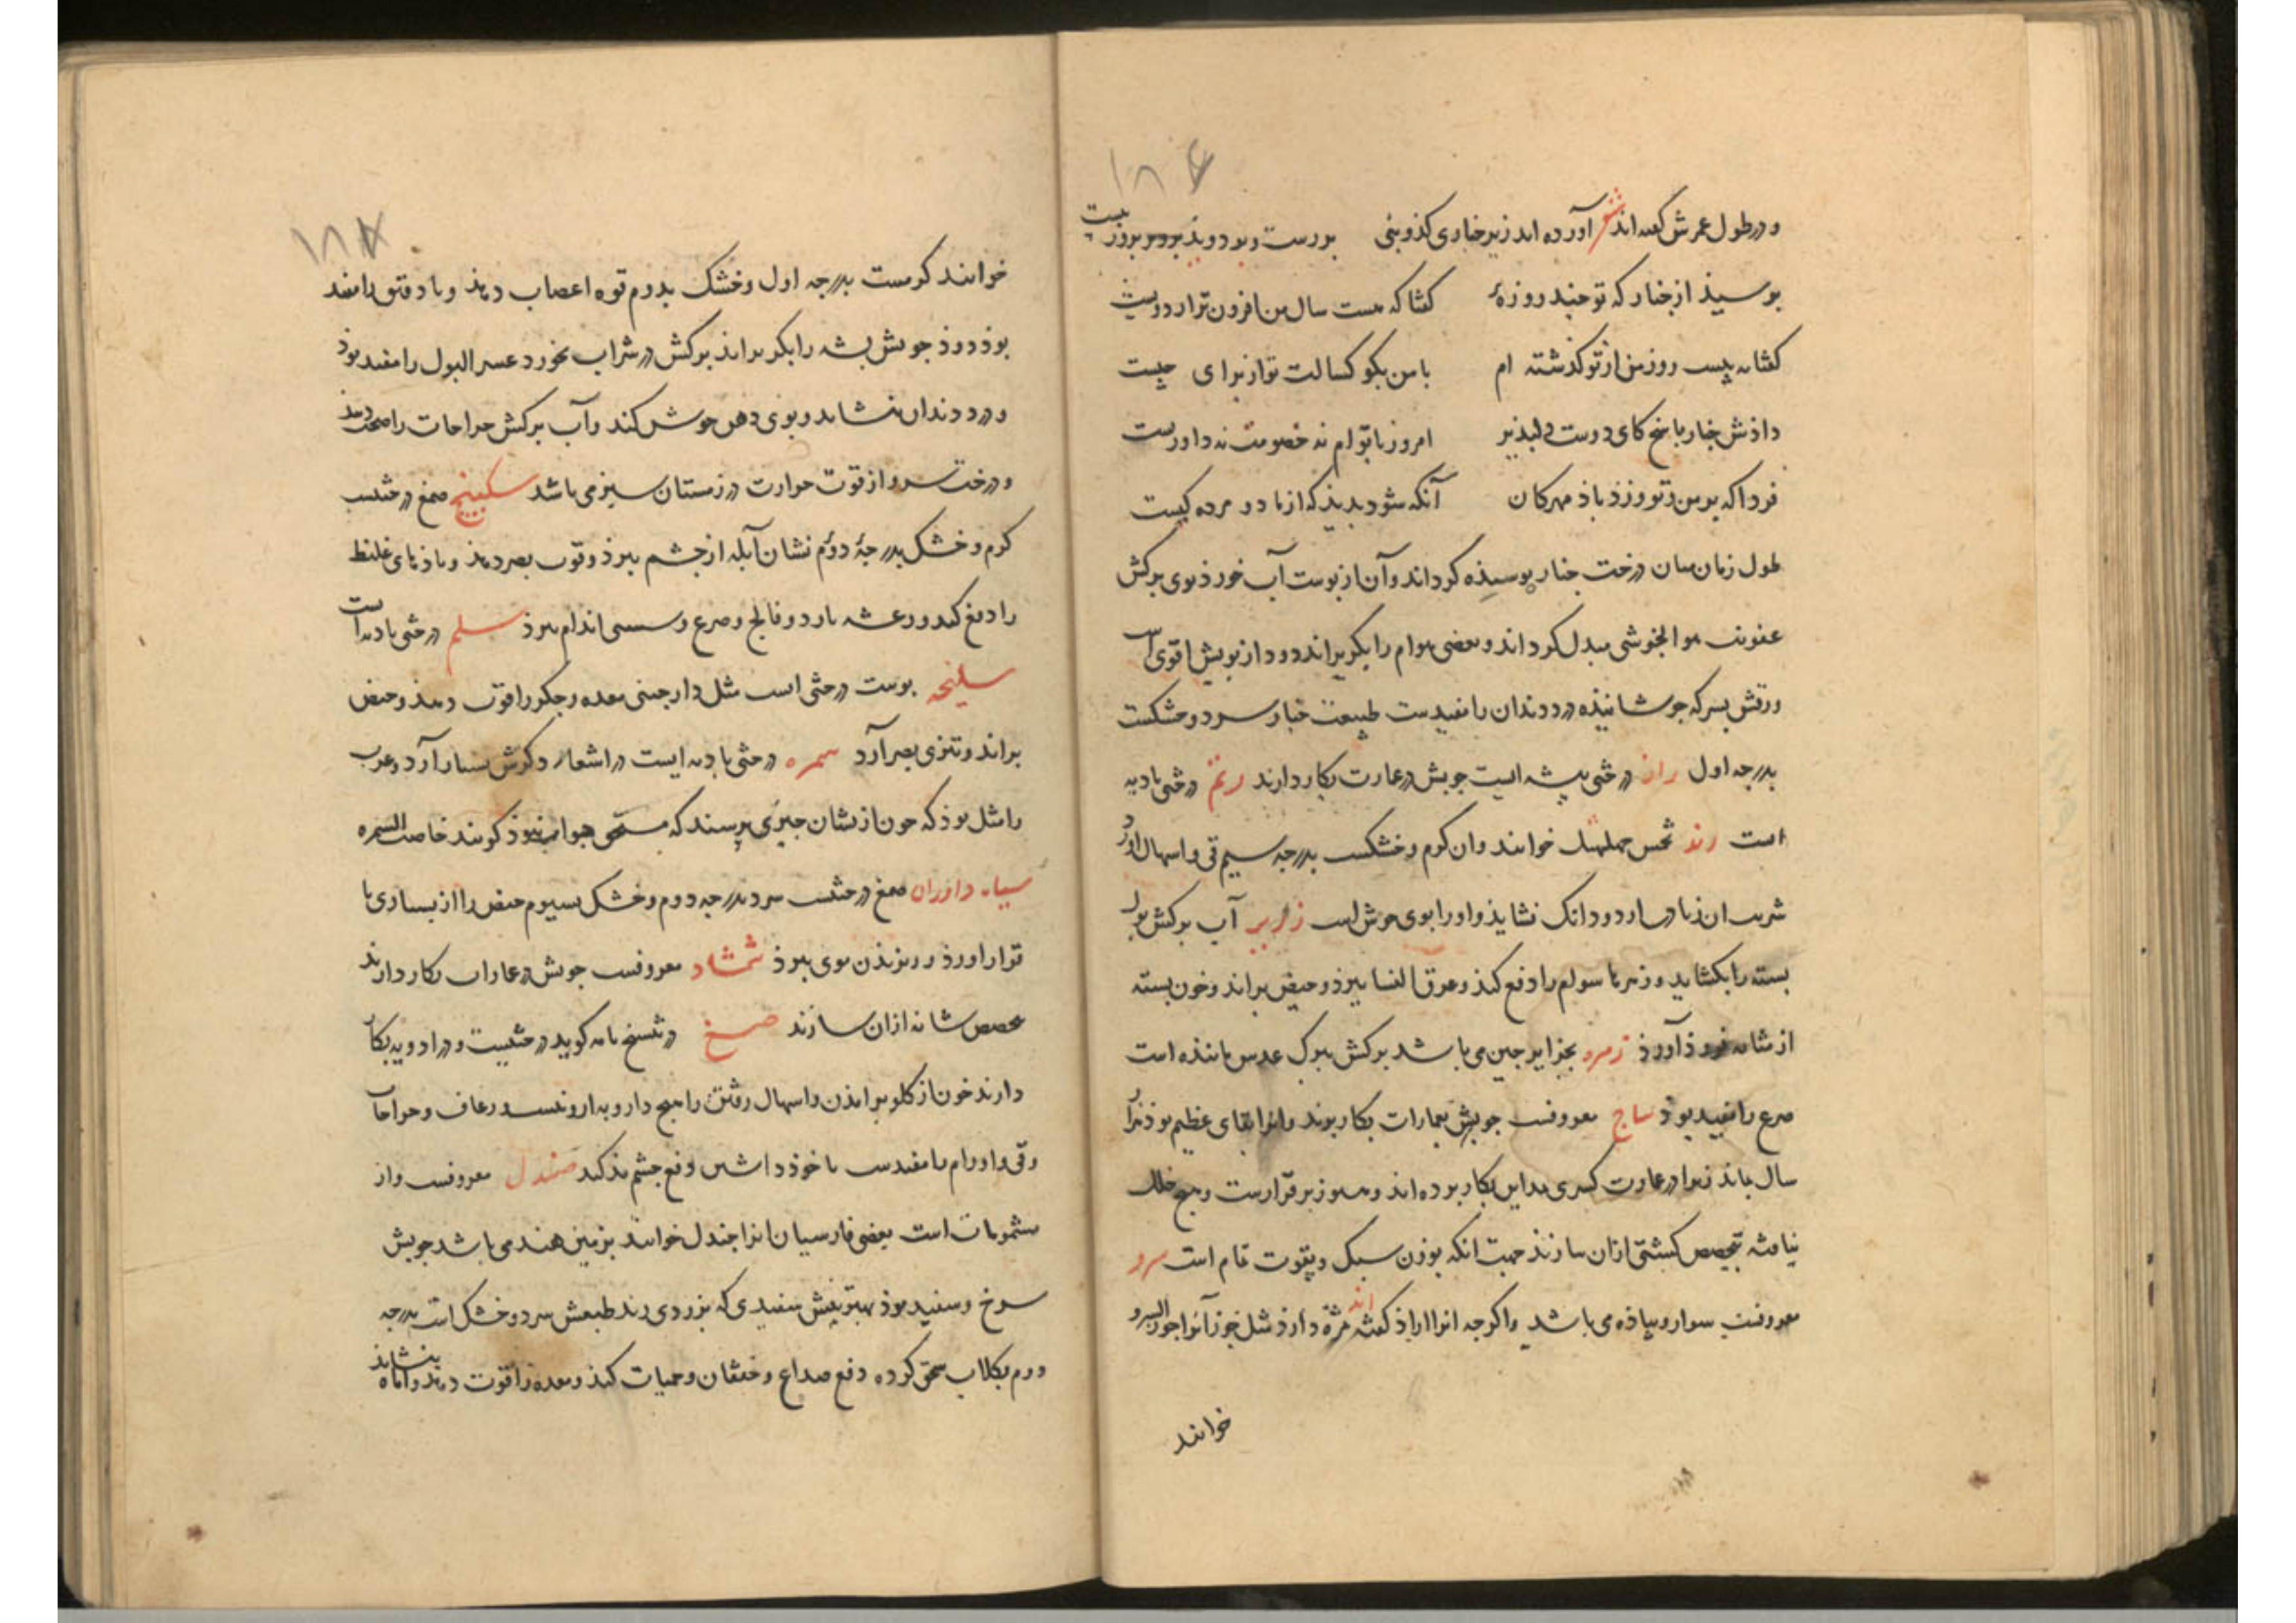 ۱۸۶
و در طول عمرش گفته‌اند شعر آورده اند زیر خناری کدو بنی بر رست و بر دوید برو بر بروز بیست
بو سیذ از خنار که تو چند روزهٔ گفتا که هست سال من افزون تر از دویست
گفتا به بیست روز من از تو گذشته ام با من بگو که کسالت تو از برای چیست
داذش خنار پاسخ کای دوست دلپذیر امروز با توام نه خصومت نه داوریست
فردا که بر من و تو وزذ باذ مهرکان آنکه شود بدید که از ما دو مرده کیست
طول زمان میان درخت جنار بوسیذه گرداند و آن از بوست آب خورذ بوی برکش
عفونت هوا بخوشی مبدل گرداند و بعضی هوام را بگریزاند و دود از بویش اقوی است
ورقش بسرکه جوشانیذه درد دندان را مفیدست طبیعت خبار سرد و خشکست
بدرجه اول ران درختی بیشه ایست جوبش در عمارت بکار دارند رتم درختی بادیه
است رند خوانند و ان کرم و خشکست بدرجه سیم قی و اسهال آورد
شربت ان زیادت از دو دانک نشایذ و او را بوی خوش است آب برکش بول
بسته را بکشاید و زهرها سوام را دفع کند و عرق النسا ببرذ و حیض براند و خون بسته
از مثانه فروذ آورذ زمره بجزایر جین می باشد برکش ببرک عدس ماننده است
صرع را مفید بوذ ساج معروفست جوبش بعمارات بکار برند و انرا بقای عظیم بوذ هزار
سال بماند زیرا در عمارت کسری بمداین بکار برده‌اند و هنوز بر قرارست و هیچ خلل
نیافته بتخصیص کشتی ازان سازند جهت انکه بوزن سبک و بقوت تمام است سرو
معروفست سوار و پیاده می باشد و اکرجه انرا ازاد گفته اند مژه دارذ مثل خوز آنرا جوز السرو
خوانند
۱۸۷
خوانند گرمست بدرجه اول و خشک بدوم قوه اعصاب دهد و باد فتق را مفید
بوذ دوذ جوبش بشه را بگریزاند برکش در شراب بخورد عسر البول را مفید بوذ
و درد دندان بنشاند و بوی دهن خوش کند و آب برکش جراحات را صحت دهذ
و درخت سرو از قوت حرارت در زمستان سبز می باشد سکبینج صمغ درختیست
کرم و خشک بدرجهٔ دوم نشان آبله از جشم ببرذ و قوت بصر دهذ و باذهای غلیظ
را دفع کند و رعشه بارد و فالج و صرع و سستی اندام ببرذ سلم درختی بادیه است
سلیخه بوست درختی است مثل دارجینی معده و جکر را قوت دهذ و حیض
براند و تیزی بصر آرد سمره درختی بادیه ایست در اشعار ذکرش بسیار آرد و عرب
را مثل بوذ که جون از نشان جیزی پرسند که مستحق جواب نبوذ گویند خاصت السمره
سیاه داوران صمغ درختیست سرد بدرجه دوم و خشک بسیوم حیض را از بسیاری با
قرار اورذ و ریزیذن موی ببرذ شمشاد معروفست جوبش در عمارات بکار دارند
بتخصیص شانه ازان سازند صمغ در تنسخ نامه کوید درختیست و در ادویه بکار
دارند خون از کلو براندن و اسهال رفتن را هیج دارو به از و نیست و رعاف و جراحات
و قی و اورام را مفیدست با خوذ داشتن دفع جشم بد کند صندل معروفست و از
مشمومات است بعضی فارسیان انرا جندل خوانند بزمین هند می باشد جوبش
سرخ و سفید بوذ بهترینش سفیدی که بزردی زند طبعش سرد و خشک است بدرجه
دوم بکلاب سحق کرده دفع صداع و خفقان و حمیات کند و معده را قوت دهد و اماه بنشاند